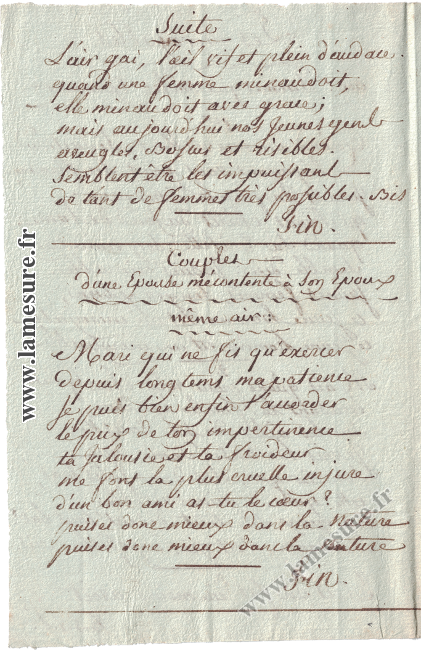 Suite
L'air gai, l'œil vif et plein d'audace.
quand une femme minaudoit,
elle minaudoit avec grace;
mais aujourd'hui nos jeunes gens
aveugles, Bossus et risibles.
Semblent être les impuissant
de tant de femmes très possibles. Bis
Fin.
Couplet
d'une Epouse mécontente à Son Epoux
même air:
Mari qui ne fis qu'exercer
depuis longtems ma patience
je puis bien enfin t'accorder
le prix de ton impertinence
ta jalousie et ta froideur
me font la plus cruelle injure
d'un bon ami as-tu le cœur?
puises donc mieux dans la Nature
puises donc mieux dans la Nature
Fin.
www.lamesure.fr
www.lamesure.fr